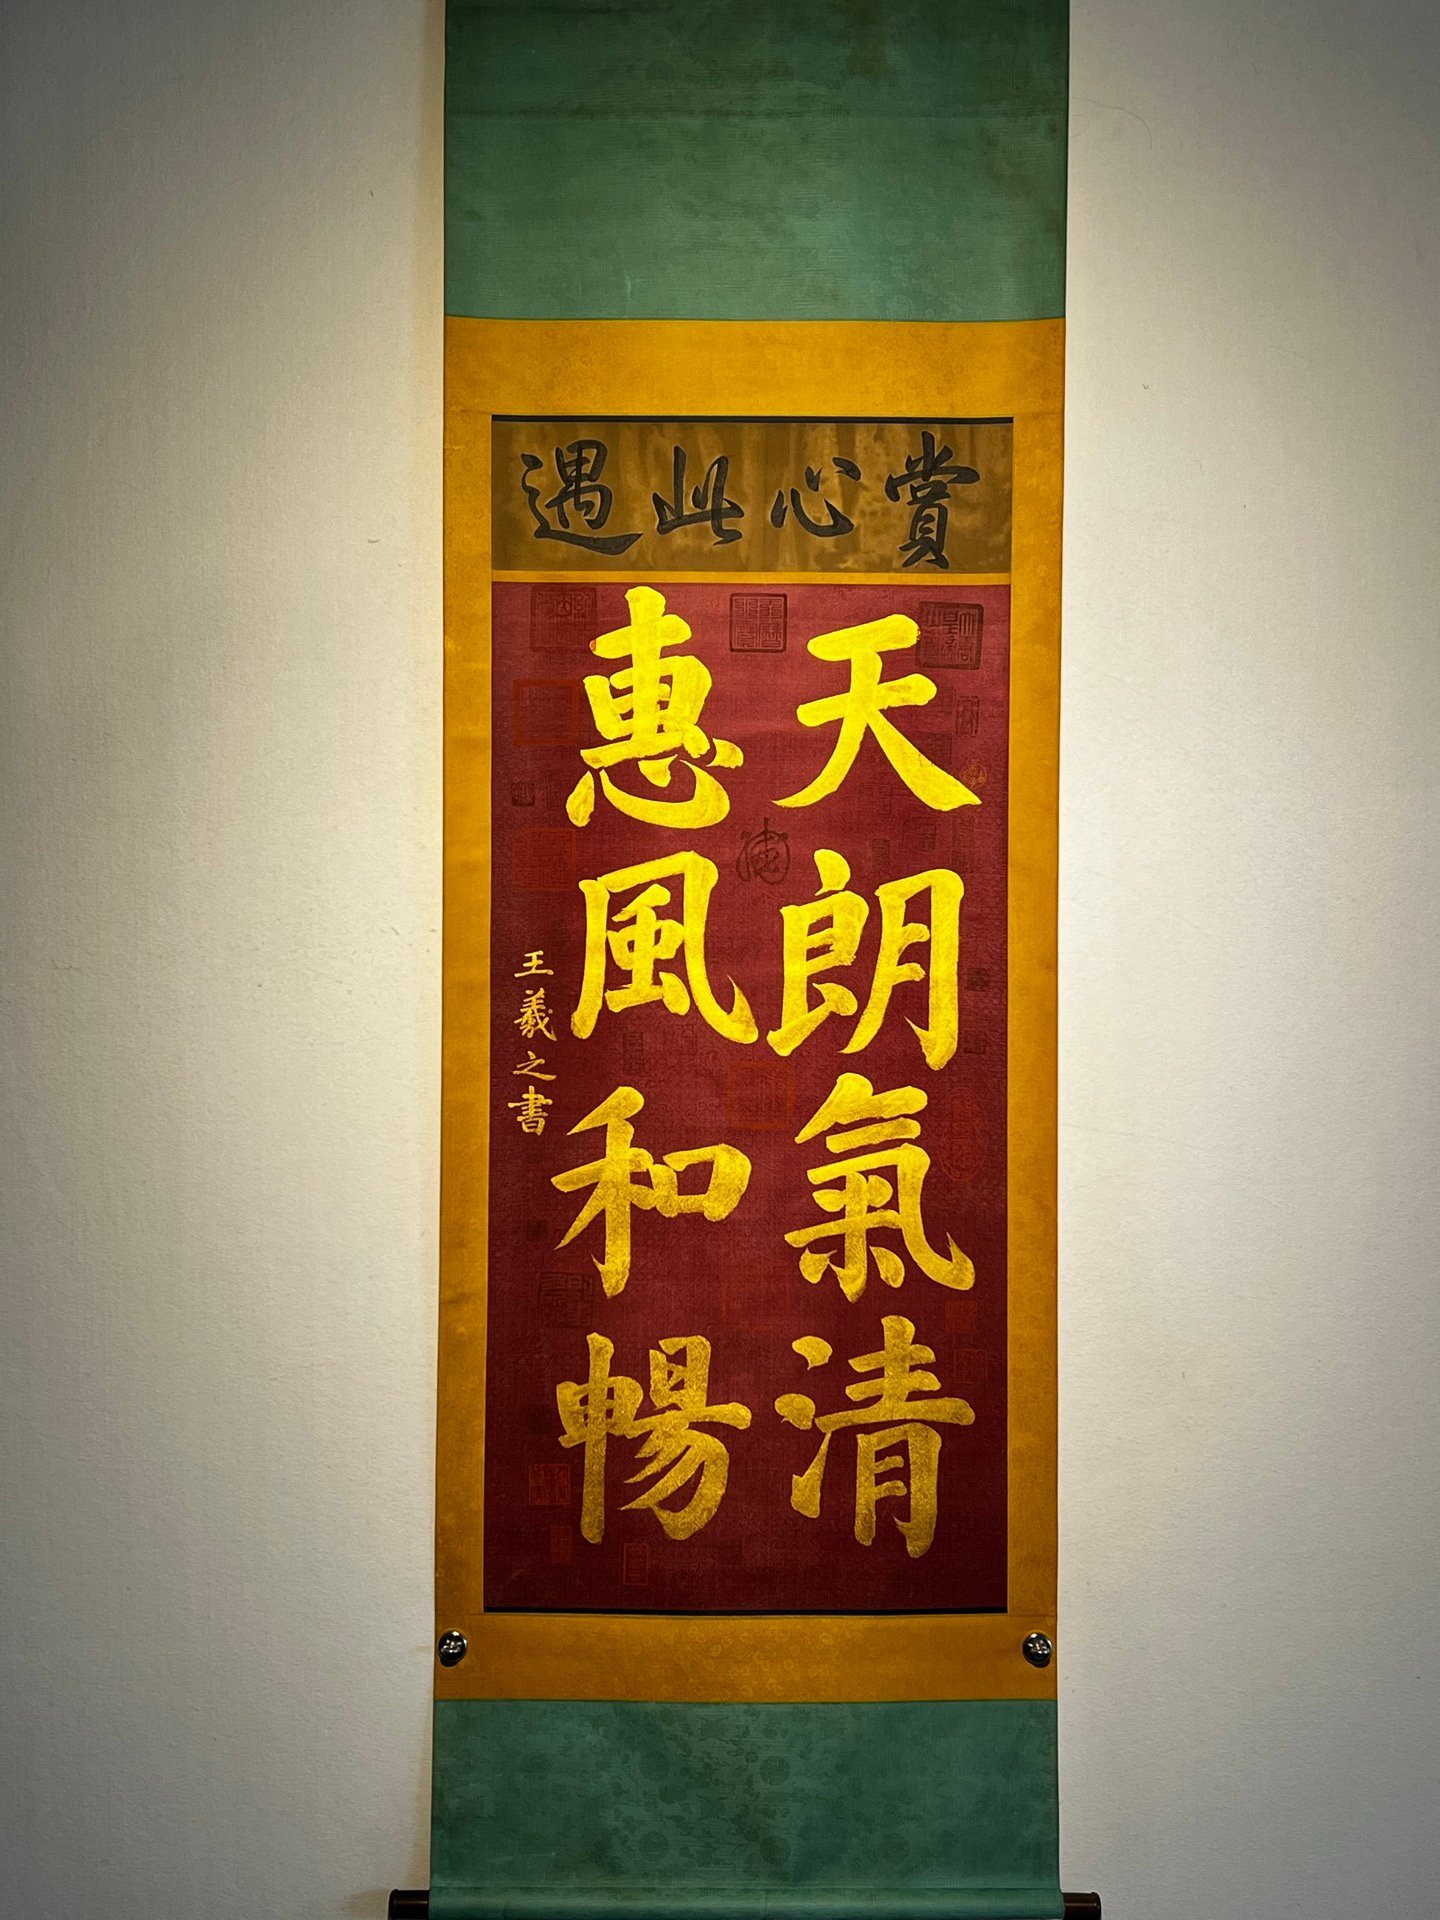 賞心此遇
天朗氣清
惠風和暢
王羲之書